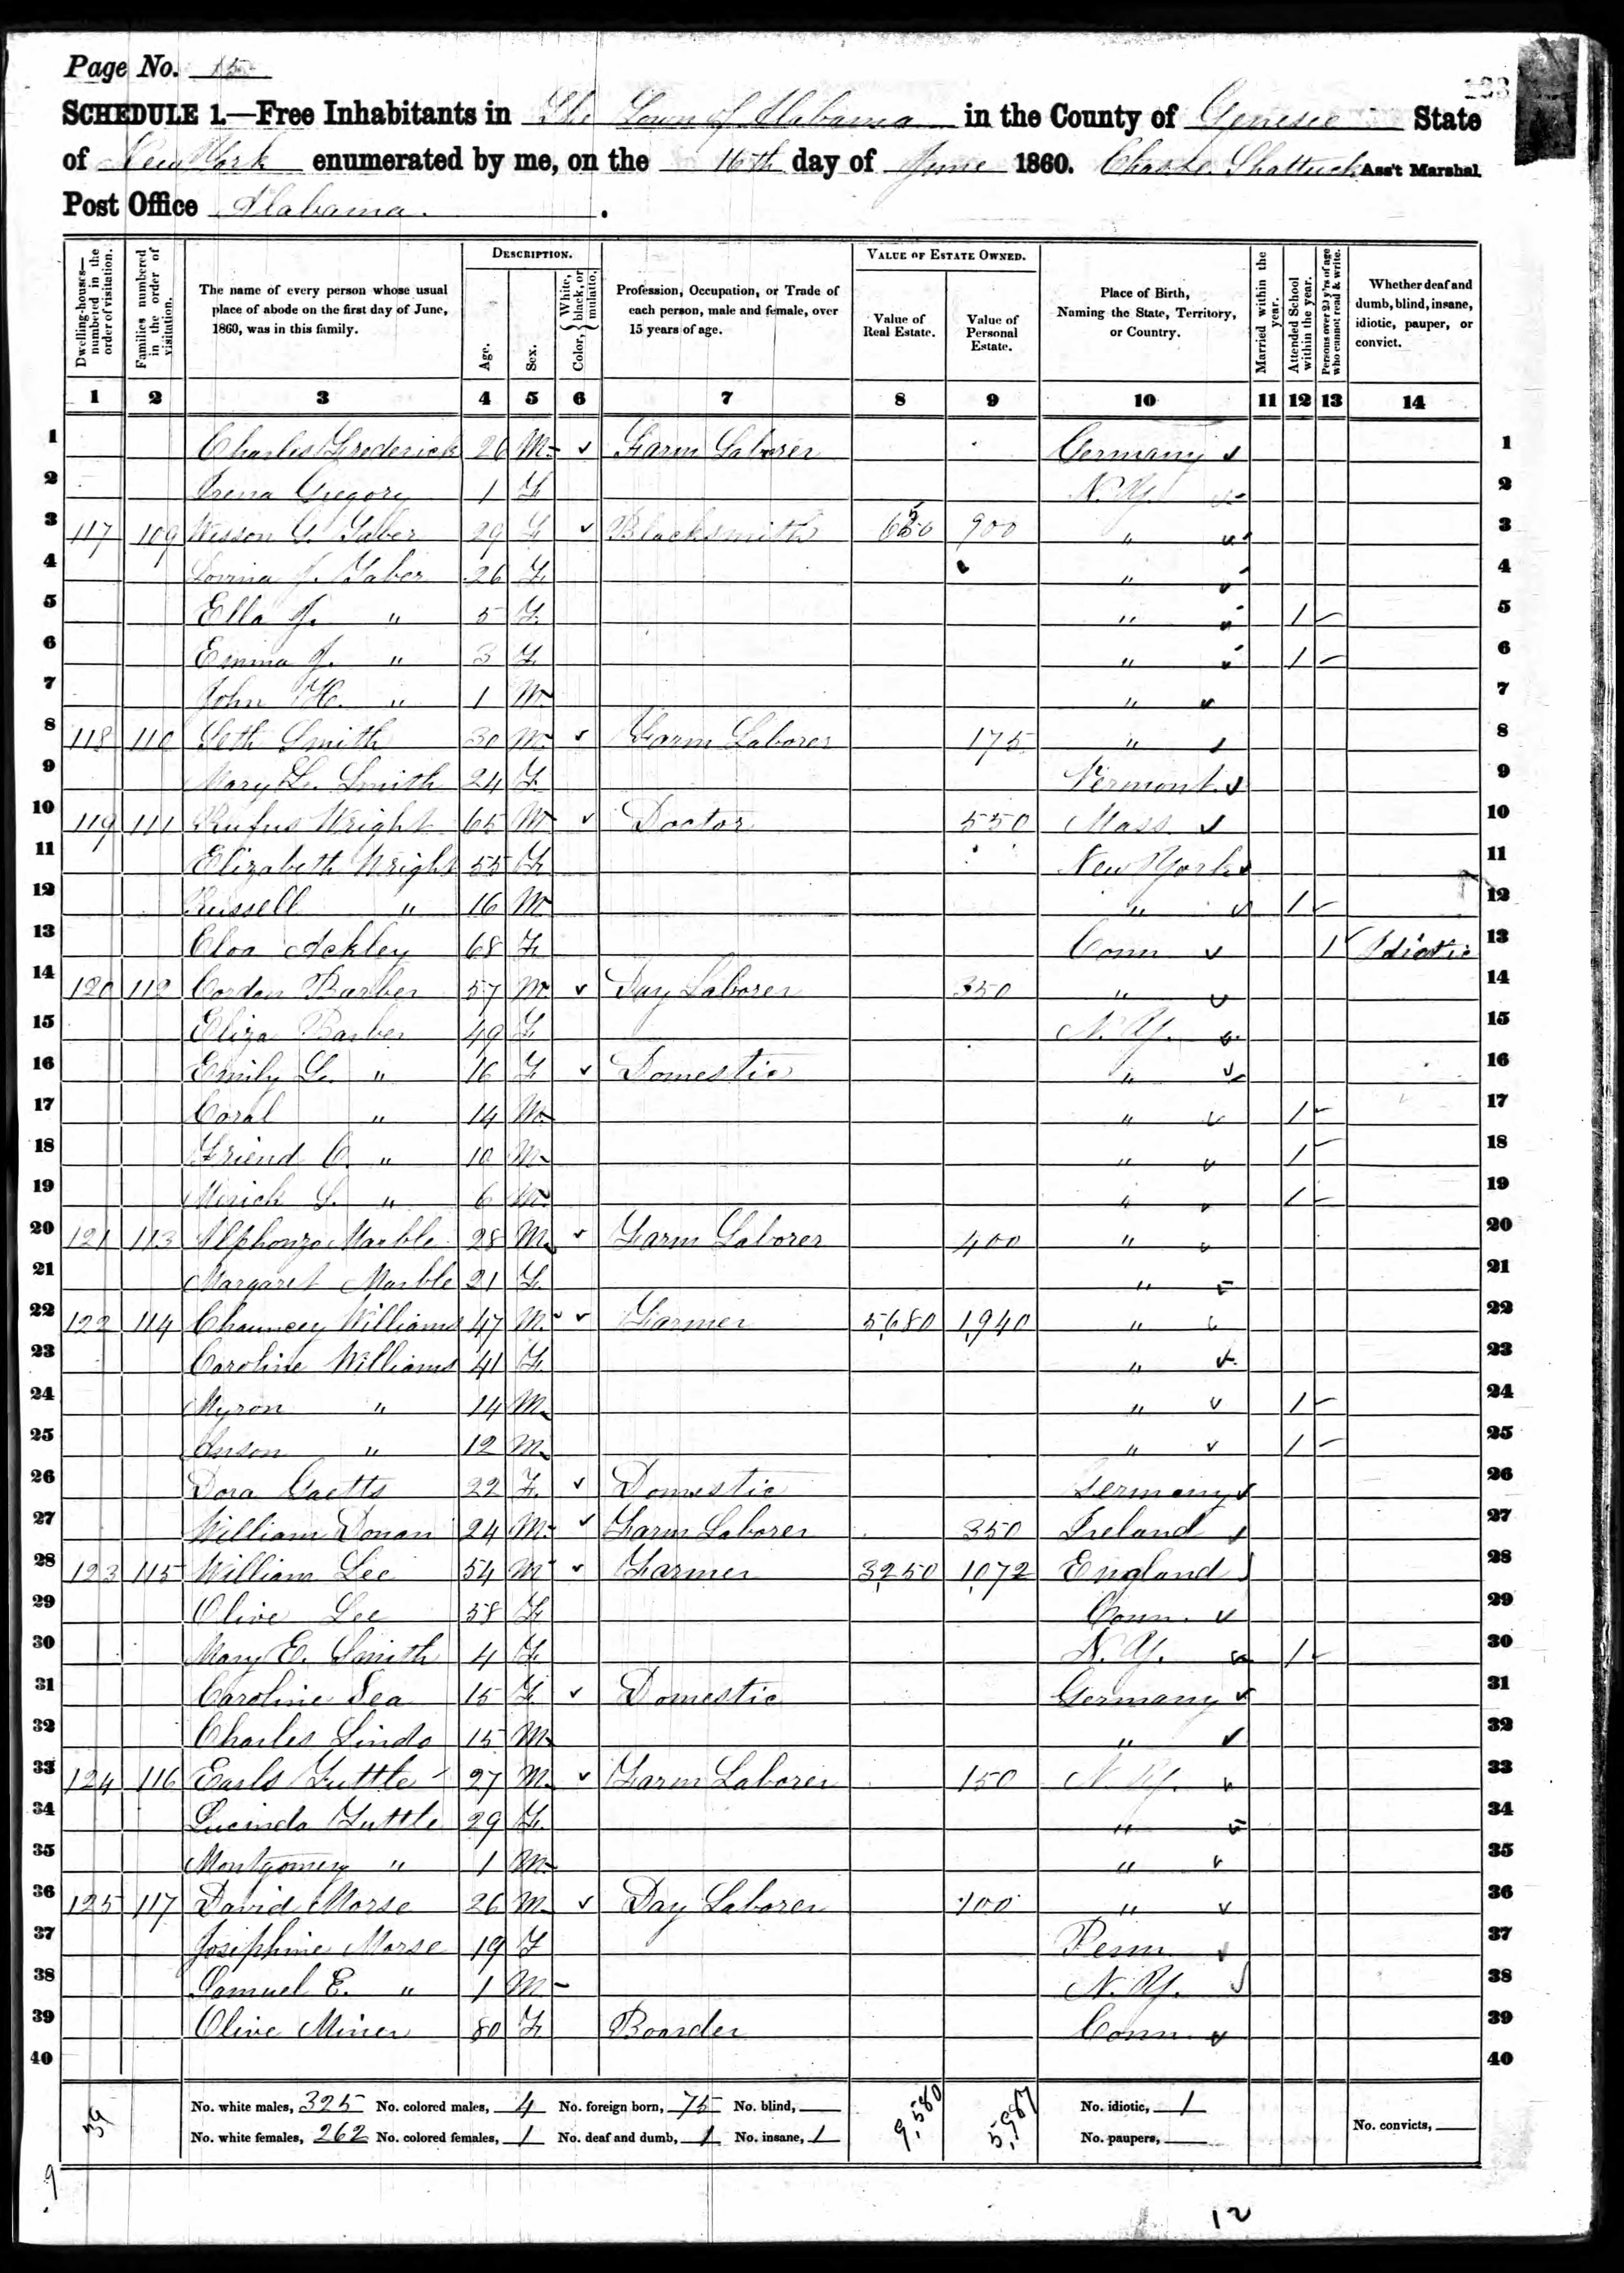 Page No. 15
SCHEDULE 1.—Free Inhabitants in The Town of Alabama in the County of Genesee State
of New York enumerated by me, on the 16th day of June 1860. Shattuck Ass't Marshal.
Post Office Alabama.
Dwelling-houses—numbered in the order of visitation. Families numbered in the order of visitation. The name of every person whose usual place of abode on the first day of June, 1860, was in this family. DESCRIPTION. Age. Sex. Color, White, black, or mulatto. Profession, Occupation, or Trade of each person, male and female, over 15 years of age. VALUE OF ESTATE OWNED. Value of Real Estate. Value of Personal Estate. Place of Birth, Naming the State, Territory, or Country. Married within the year. Attended School within the year. Persons over 20 y'rs of age who cannot read & write. Whether deaf and dumb, blind, insane, idiotic, pauper, or convict.
1 2 3 4 5 6 7 8 9 10 11 12 13 14
1 Charles Frederick 26 M Farm Laborer Germany 1
2 Irena Gregory 1 F N.Y. 2
3 117 109 Wesson G. Taber 29 F Blacksmith 650 900 " 3
4 Lovina J. Taber 26 F " 4
5 Ella J. " 5 F " 1 5
6 Emma J. " 3 F " 1 6
7 John H. " 1 M " 7
8 118 110 Seth Smith 30 M Farm Laborer 175 " 8
9 Mary L. Smith 24 F Vermont 9
10 119 111 Rufus Wright 65 M Doctor 550 Mass 10
11 Elizabeth Wright 55 F New York 11
12 Russell " 16 M " 1 12
13 Cloa Ackley 68 F Conn 1 Idiotic 13
14 120 112 Cordon Barber 57 M Day Laborer 350 " 14
15 Eliza Barber 49 F N.Y. 15
16 Emily L. " 16 F Domestic " 16
17 Coral " 14 M " 1 17
18 Friend C. " 10 M " 1 18
19 Mirich L. " 6 M " 1 19
20 121 113 Alphonzo Marble 28 M Farm Laborer 400 " 20
21 Margaret Marble 21 F " 21
22 122 114 Chauncey Williams 47 M Farmer 5,680 1,940 " 22
23 Caroline Williams 41 F " 23
24 Myron " 14 M " 1 24
25 Anson " 12 M " 1 25
26 Dora Gaetts 22 F Domestic Germany 26
27 William Donan 24 M Farm Laborer 350 Ireland 27
28 123 115 William Lee 54 M Farmer 3,250 1,072 England 28
29 Olive Lee 58 F Conn. 29
30 Mary E. Smith 4 F N.Y. 1 30
31 Caroline Sea 15 F Domestic Germany 31
32 Charles Linda 15 M " 32
33 124 116 Earls Tuttle 27 M Farm Laborer 150 N.Y. 33
34 Lucinda Tuttle 29 F " 34
35 Montgomery " 1 M " 35
36 125 117 David Morse 26 M Day Laborer 100 " 36
37 Josephine Morse 19 F Penn 37
38 Samuel E. " 1 M N.Y. 38
39 Olive Miner 80 F Boarder Conn 39
40 40
39 No. white males, 325 No. colored males, 4 No. foreign born, 75 No. blind, 9,580 5,987 No. idiotic, 1
No. white females, 262 No. colored females, 1 No. deaf and dumb, 1 No. insane, 1 No. paupers, No. convicts,
9
12